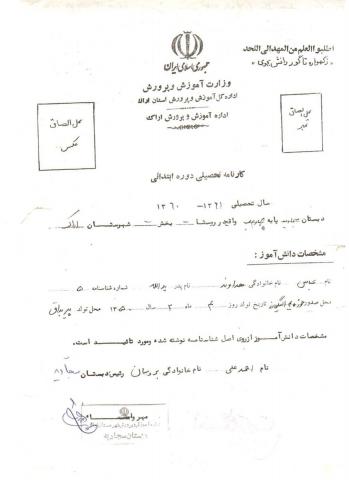 اطلبوا العلم من المهد الی اللحد
« ز گهواره تا گور دانش بجوی »
جمهوری اسلامی ایران
وزارت آموزش و پرورش
اداره کل آموزش و پرورش استان اراک
اداره آموزش و پرورش اراک
محل الصاق
عکس
محل الصاق
تمبر
کارنامه تحصیلی دوره ابتدائی
سال تحصیلی ۱۳۶۱-۱۳۶۰
دبستان پایه واقع در روستا - بخش - شهرستان اراک
مشخصات دانش آموز :
نام عباسی نام خانوادگی نام پدر یداله شماره شناسنامه ۵
محل صدور تاریخ تولد روز ماه ۲ سال ۱۳۵۰ محل تولد
مشخصات دانش آموز از روی اصل شناسنامه نوشته شده و مورد تائید است.
نام احمد علی نام خانوادگی رئیس دبستان سجادیه
مهر و امضاء
دبستان سجادیه